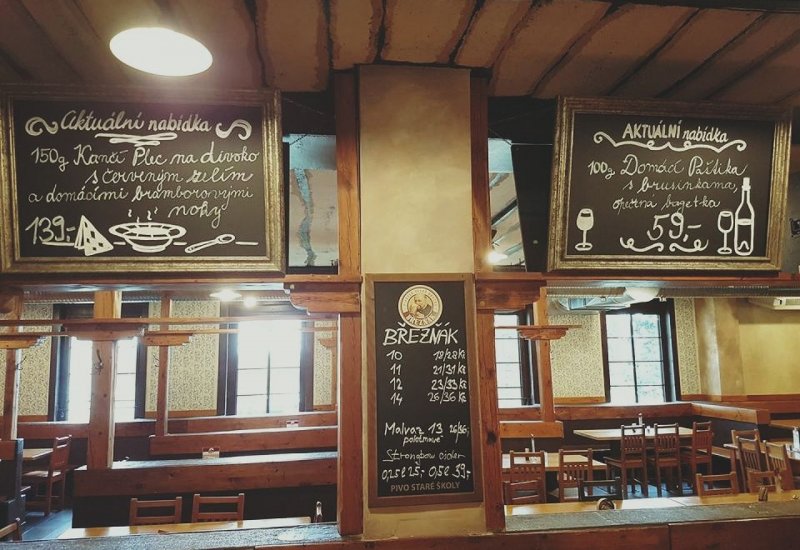 Aktuální nabídka
150g Kančí Plec na divoko
s červeným zelím
a domácími bramborovými
noky
139,-
BŘEZŇÁK
10 18/28 Kč
11 21/31 Kč
12 23/33 Kč
14 26/36 Kč
Malvaz 13 26/36,-
polotmavé
Strongbow cider
0,25l 25,- 0,5l 39,-
PIVO STARÉ ŠKOLY
AKTUÁLNÍ nabídka
100g Domácí Paštika
s brusinkama,
opečená bagetka
59,-